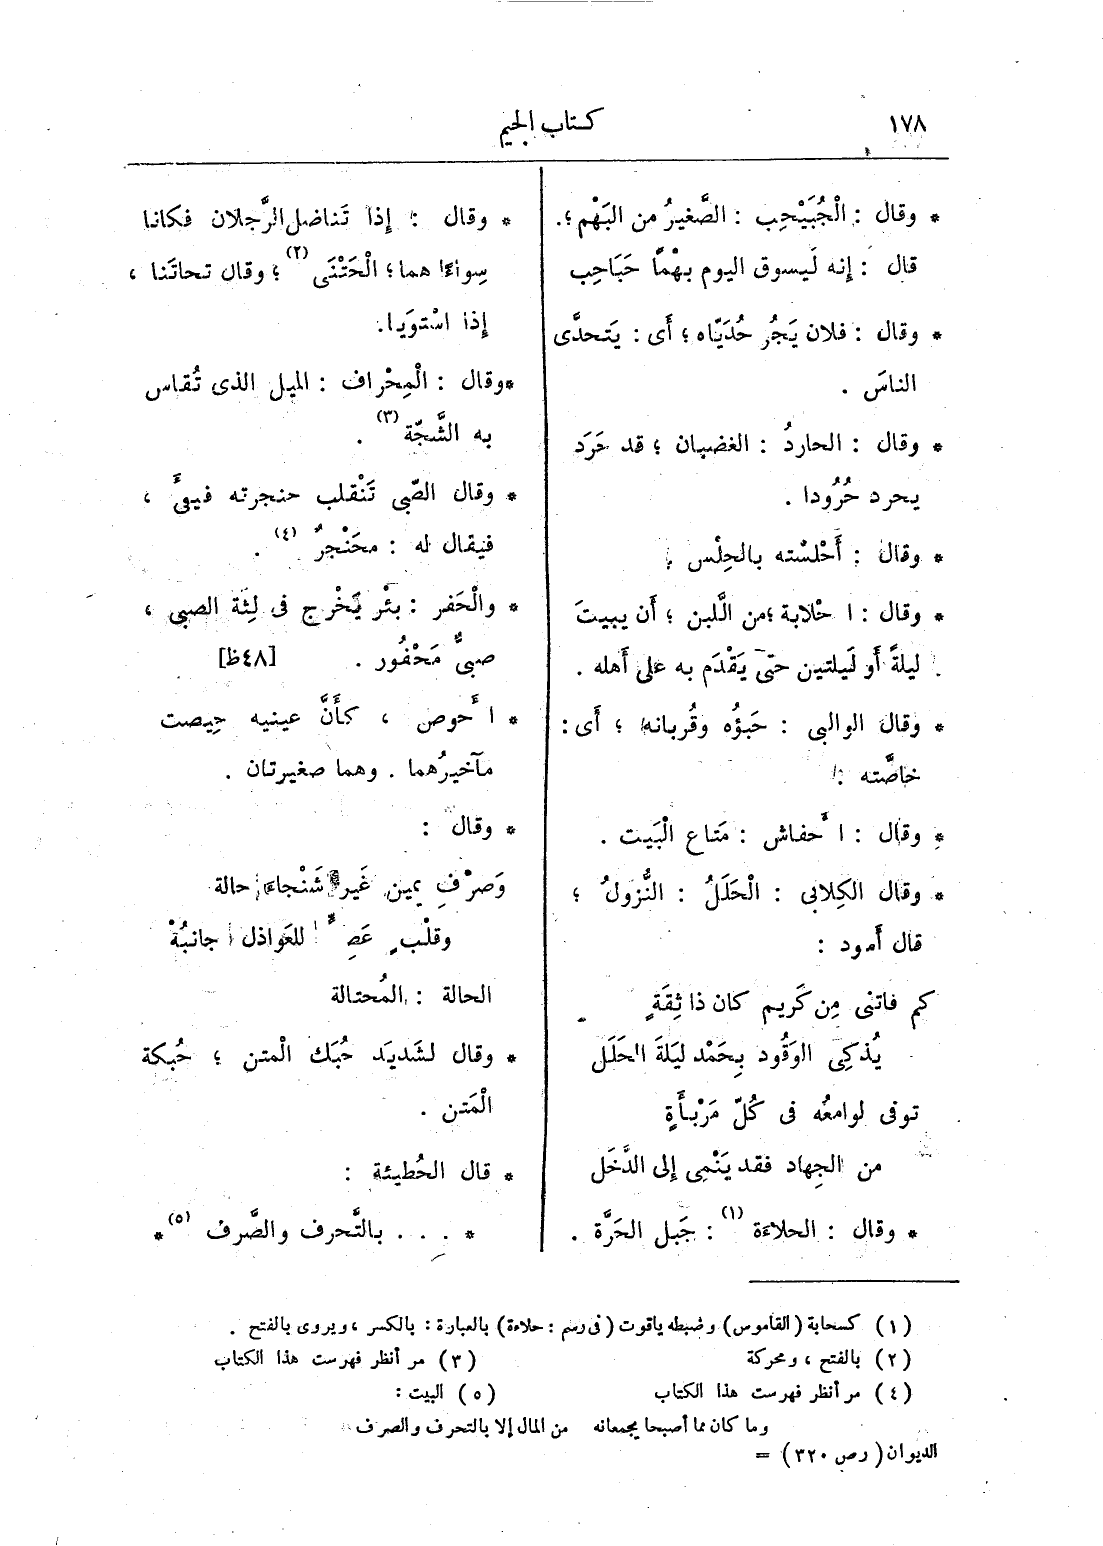 ١٧٨
كتاب الجيم
* وقال : الْجُبَيْحِب : الصَّغيرُ من البَهْم ؛
قال : إنه لَيسوق اليوم بهْمًا حَبَاحِب
* وقال : فلان يَجُر حُدَيّاه ؛ أَى : يَتحدَّى
الناسَ .
* وقال : الحاردُ : الغضبان ؛ قد حَرَد
يحرد حُرُودا .
* وقال : أَحْلسْته بالحِلْس .
* وقال : ا حْلابة ؛من اللَّبن ؛ أَن يبيتَ
ليلةً أَو لَيلتين حتَّى يَقْدَم به على أَهله .
* وقال الوالبى : حَبؤُه وقُربانه ؛ أَى :
خاصَّته .
* وقال : ا أَحفاش : مَتاع الْبَيت .
* وقال الكِلابى : الْحَلَلُ : النُّزولُ ؛
قال أَسود :
كم فاتنى مِن كَريم كان ذا ثِقَةٍ
يُذكِى الوَقُود بِحَمْد ليلةَ الحَلَل
توفى لوامعُه فى كُلّ مَرْبأَةٍ
من الجِهاد فقد يَنْمِى إلى الدَّخَل
* وقال : الحلاءَة (١) : جَبل الحَرَّة .
* وقال : إذا تَناضل الرَّجلان فكانا
سواءًا هما؛ الْحَتْنَى (٢) ؛ وقال تحاتَنا ،
إذا اسْتويَا.
*وقال : الْمِحْراف : الميل الذى تُقاس
به الشَّجّة (٣) .
* وقال الصّبى تَنْقلب حنجرته فيقىُٔ ،
فيقال له : محَنْجرٌ (٤) .
* والْحَفر : بئْر يَخْرج فى لِثة الصبى ،
صبىٌّ مَحْفُور . [٤٨ظ]
* ا أَحوص ، كأَنَّ عينيه حِيصت
مآخيرُهما . وهما صغيرتان .
* وقال :
وَصرْفِ يمين غَير شَنْجاء حالة
وقلْبٍ عَصِ للعَواذل جانبُهْ
الحالة : المُحتالة
* وقال لشَديَد حُبَك الْمتن ؛ حُبكة
الْمَتن .
* قال الحُطيئة :
* . . . بالتَّحرف والصَّرف (٥) *
(١) كسحابة (القاموس) وضبطه ياقوت (فى رسم : حلاءة) بالعبارة : بالكسر ، ويروى بالفتح .
(٢) بالفتح ، ومحركة
(٣) مر أنظر فهرست هذا الكتاب
(٤) مر أنظر فهرست هذا الكتاب
(٥) البيت :
وما كان مما أصبحا يجمعانه من المال إلا بالتحرف والصرف
الديوان ( رص ٣٢٠ ) =